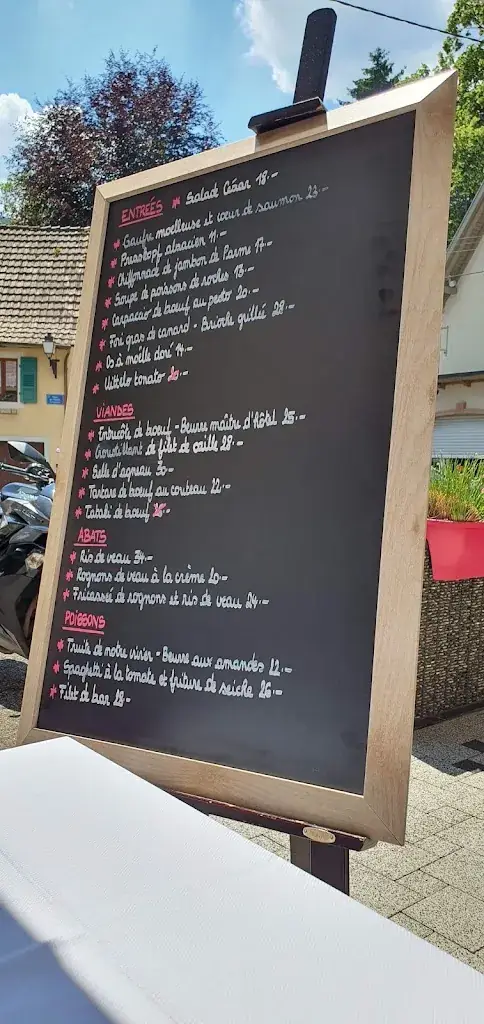 ENTRÉES * Salade César 18.-
* Gaufre moelleuse et cœur de saumon 23.-
* Presskopf alsacien 11.-
* Chiffonnade de jambon de Parme 17.-
* Soupe de poissons de roches 13.-
* Carpaccio de bœuf au pesto 20.-
* Foie gras de canard - Brioche grillée 28.-
* Os à moëlle doré 14.-
* Vittelo tonato
VIANDES
* Entrecôte de bœuf - Beurre maître d'hôtel 25.-
* Croustillant de filet de caille 28.-
* Selle d'agneau 30-
* Tartare de bœuf au couteau 22.-
* Tataki de bœuf
ABATS
* Ris de veau 34.-
* Rognons de veau à la crème 20.-
* Fricassé de rognons et ris de veau 24.-
POISSONS
* Truite de notre vivier - Beurre aux amandes 22.-
* Spaghetti à la tomate et friture de seiche 26.-
* Filet de bar 28.-